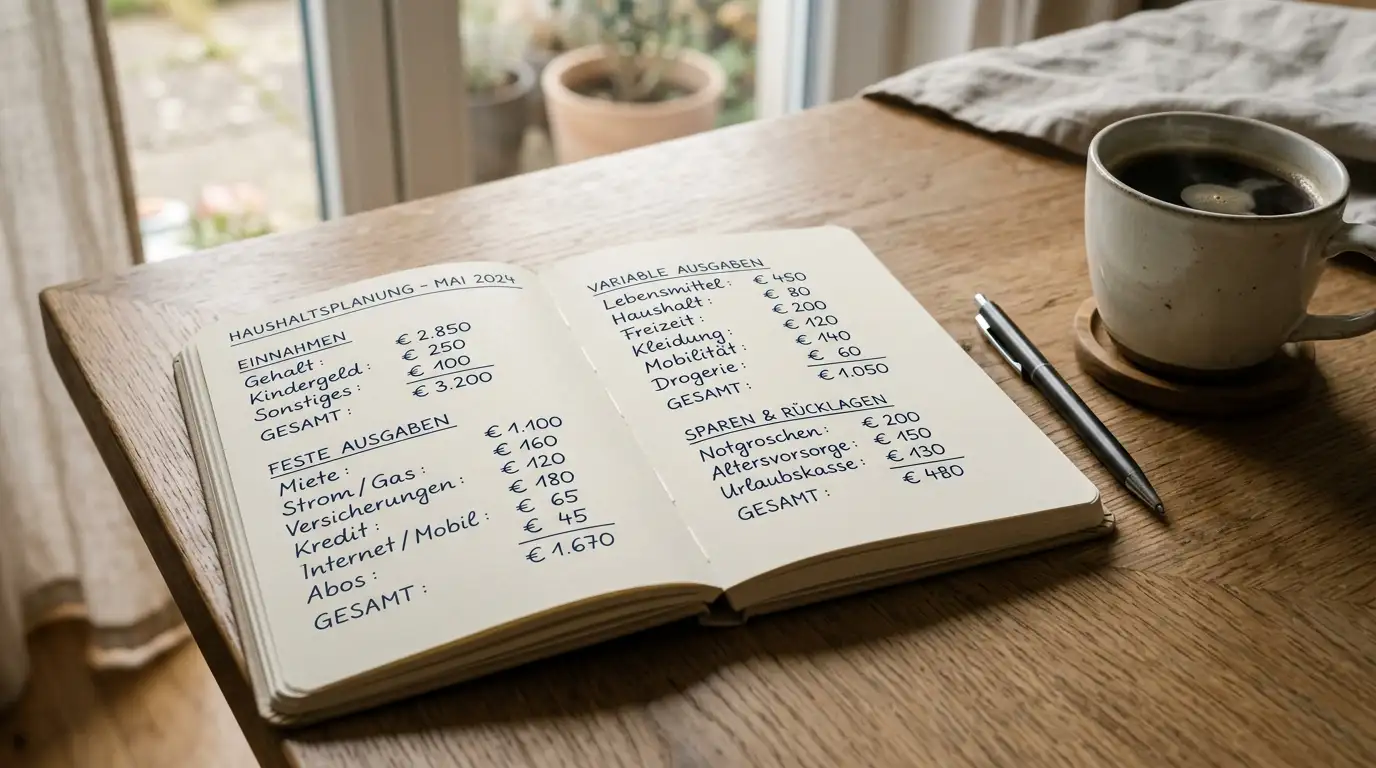 HAUSHALTSPLANUNG – MAI 2024
EINNAHMEN
Gehalt: € 2.850
Kindergeld: € 250
Sonstiges: € 100
GESAMT: € 3.200
FESTE AUSGABEN
Miete: € 1.100
Strom/Gas: € 160
Versicherungen: € 120
Kredit: € 180
Internet/Mobil: € 65
Abos: € 45
GESAMT: € 1.670
VARIABLE AUSGABEN
Lebensmittel: € 450
Haushalt: € 80
Freizeit: € 200
Kleidung: € 120
Mobilität: € 140
Drogerie: € 60
GESAMT: € 1.050
SPAREN & RÜCKLAGEN
Notgroschen: € 200
Altersvorsorge: € 150
Urlaubskasse: € 130
GESAMT: € 480